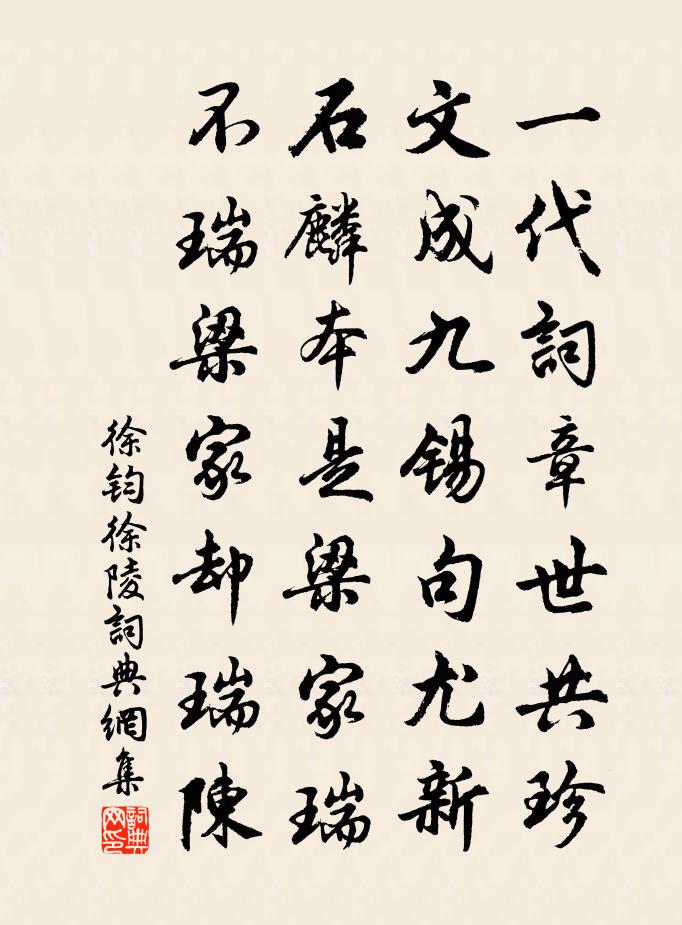 一代詞章世共珍
文成九錫句尤新
石麟本是梁家瑞
不瑞梁家却瑞陳
徐鈞徐陵詞典網集
詞典网印